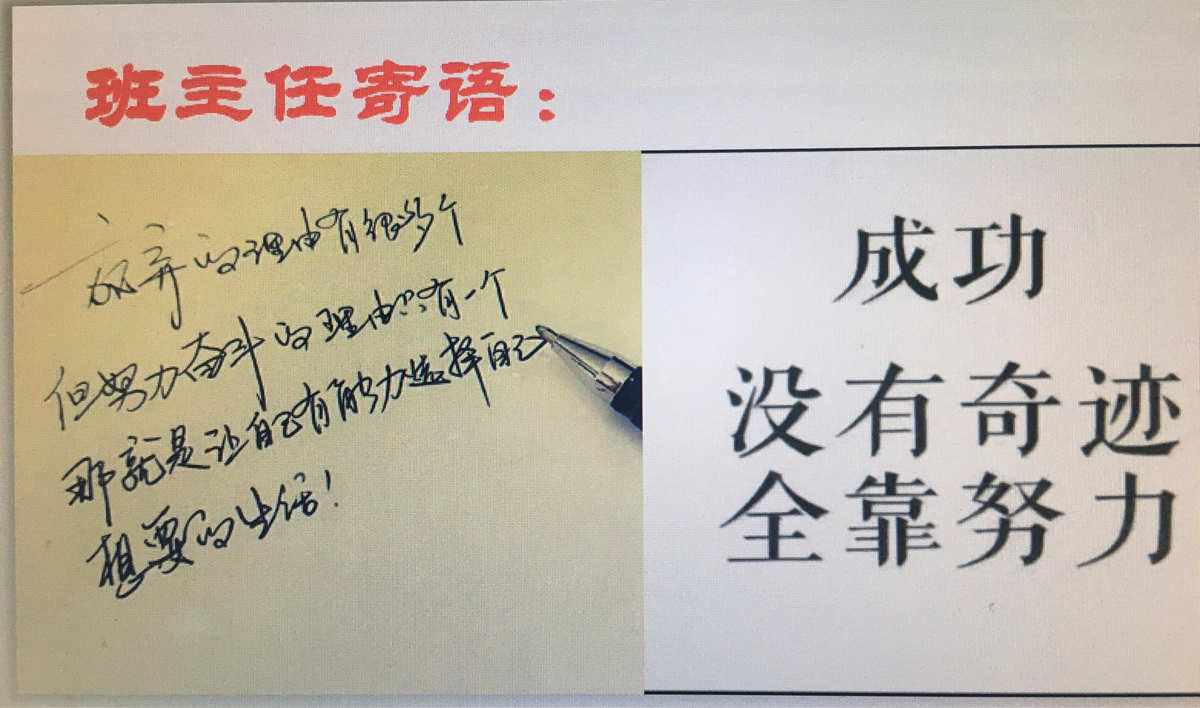 班主任寄语：
放弃的理由有很多个
但努力奋斗的理由只有一个
那就是让自己有能力选择自己
想要的生活！
成功
没有奇迹
全靠努力